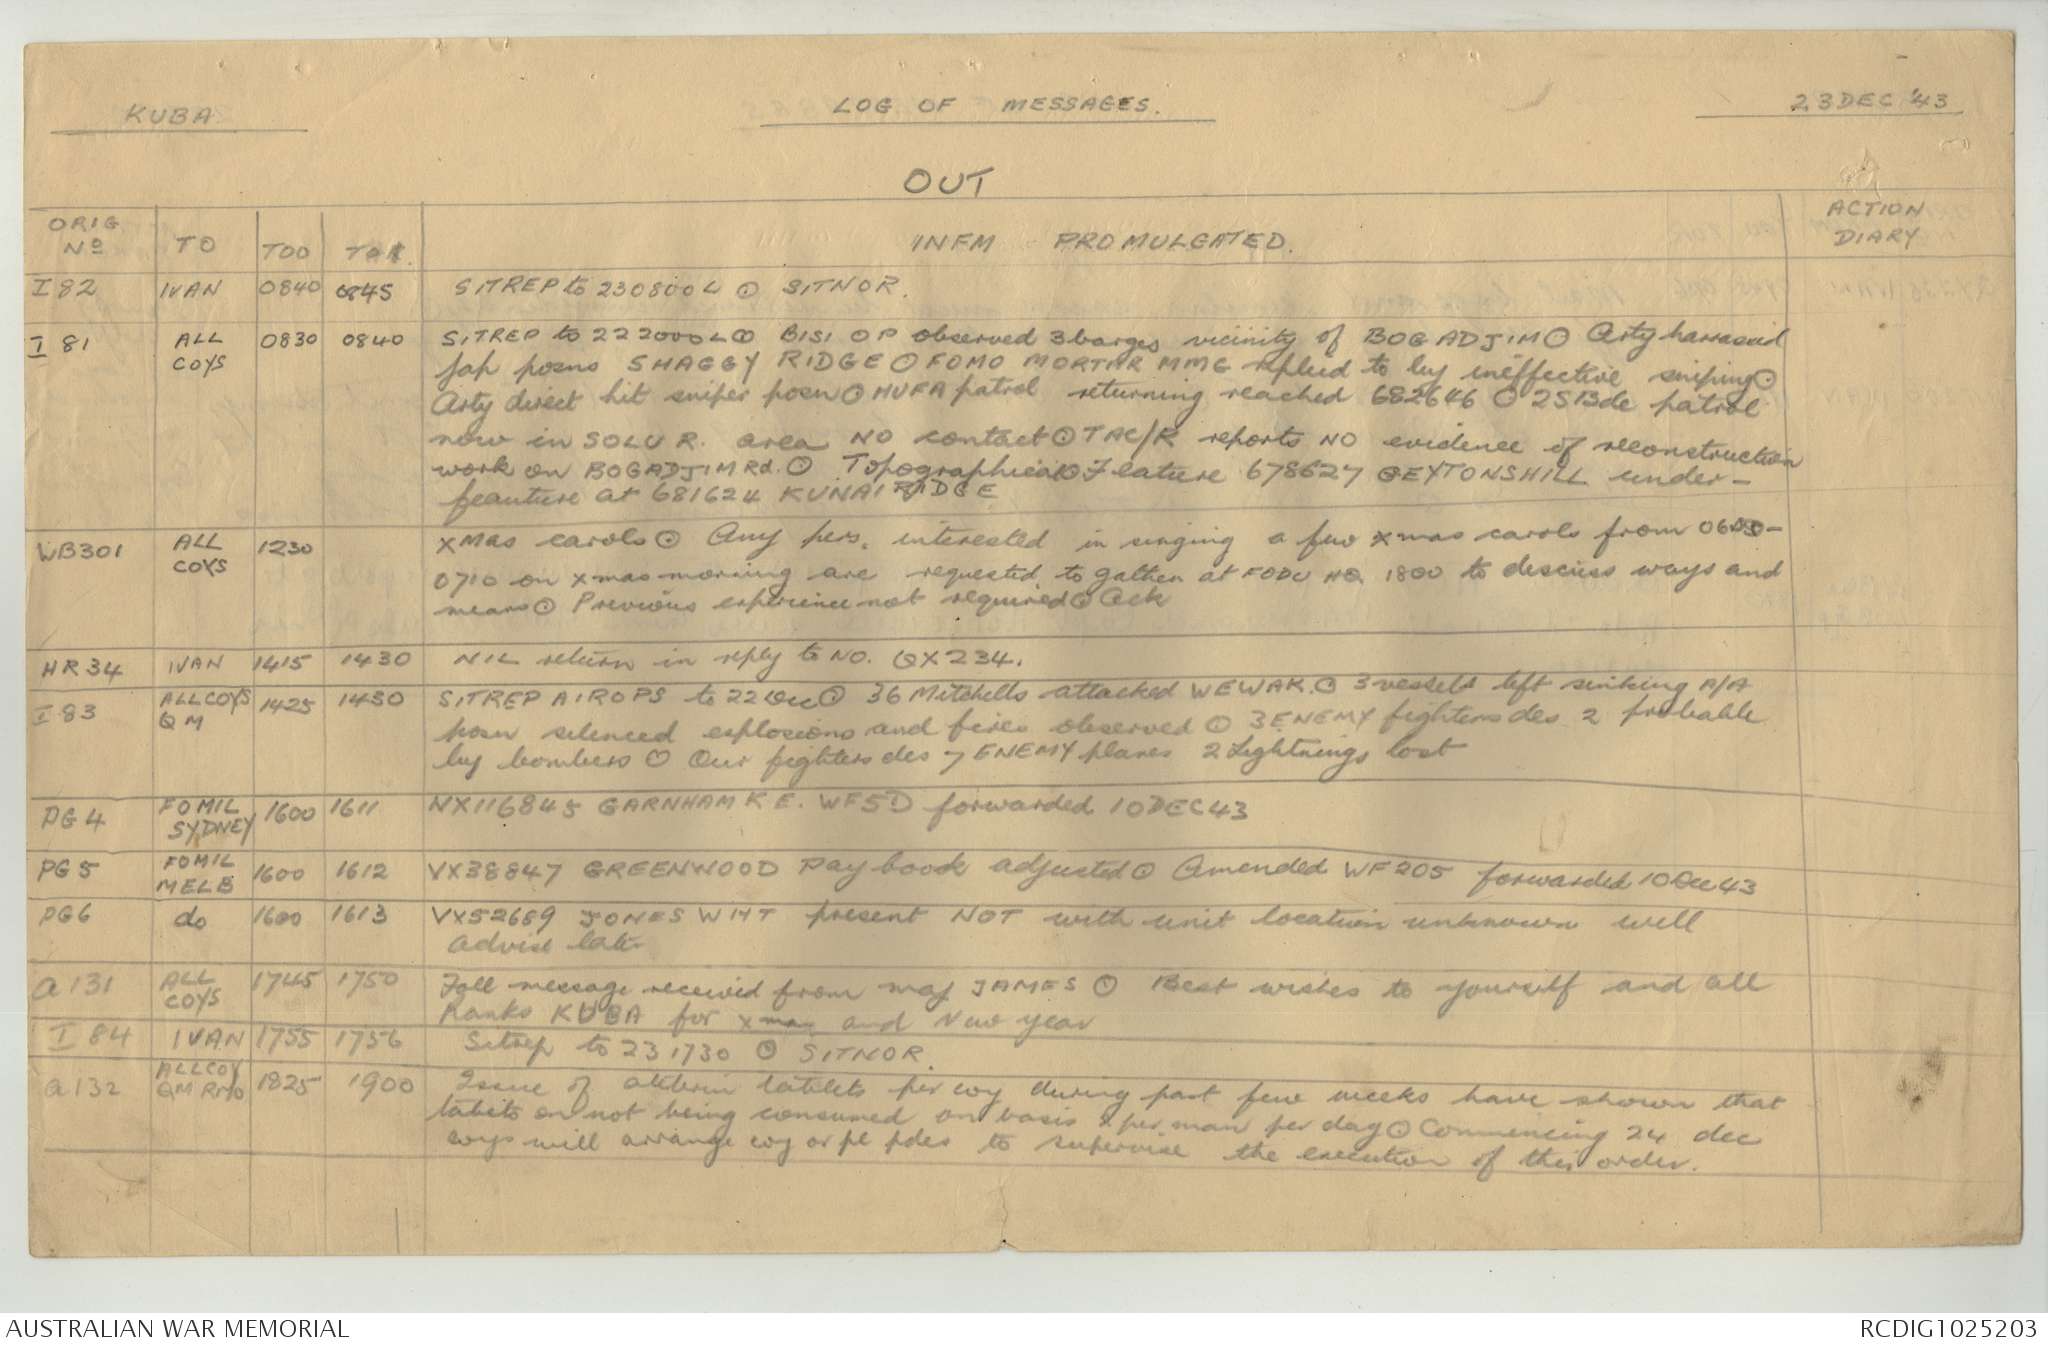 KUBA
LOG OF MESSAGES.
23 DEC '43
OUT
ORIG Nº TO TOO TOR. INFM PROMULGATED. ACTION DIARY
I 82 IVAN 0840 0845 SITREP to 230800L ⊙ SITNOR.
I 81 ALL COYS 0830 0840 SITREP to 222000L ⊙ BISI OP observed 3 barges vicinity of BOGADJIM ⊙ Arty harrassed
Jap posns SHAGGY RIDGE ⊙ FOMO MORTAR MMG replied to by ineffective sniping ⊙
Arty direct hit sniper posn ⊙ HUFA patrol returning reached 682646 ⊙ 25 Bde patrol
now in SOLU R. area NO contact ⊙ TAC/R reports NO evidence of reconstruction
work on BOGADJIM Rd. ⊙ Topographical ⊙ Feature 678627 GEYTONSHILL under-
feauture at 681624 KUNAI RIDGE
WB301 ALL COYS 1230 XMas carols ⊙ Any pers. interested in singing a few xmas carols from
0710 on xmas morning are requested to gather at FODU HQ. 1800 to discuss ways and
means ⊙ Previous experience not required ⊙ Ack
HR 34 IVAN 1415 1430 NIL return in reply to NO. QX234.
I 83 ALL COYS QM 1425 1430 SITREP AIROPS to 22 Dec ⊙ 36 Mitchells attacked WEWAK. ⊙ 3 vessels left sinking A/A
posn silenced explosions and fires observed ⊙ 3 ENEMY fighters des 2 probable
by bombers ⊙ Our fighters des 7 ENEMY planes 2 Lightnings lost
PG 4 FOMIL SYDNEY 1600 1611 NX116845 GARNHAM K E. WF5D forwarded 10 DEC 43
PG 5 FOMIL MELB 1600 1612 VX38847 GREENWOOD Pay book adjusted ⊙ Amended WF205 forwarded 10 Dec 43
PG6 do 1600 1613 VX52659 JONES WHT present NOT with unit location unknown will
advise later
A 131 ALL COYS 1745 1750 Foll message received from maj JAMES ⊙ Best wishes to yourself and all
Ranks KUBA for xmas and New year
I 84 IVAN 1755 1756 Sitrep to 231730 ⊙ SITNOR.
A 132 ALL COY QM RMO 1825 1900 Issue of atebrin tablets per coy during past few weeks have shown that
tablets on not being consumed on basis per man per day ⊙ Commencing 24 dec
coys will arrange coy or pl pdes to supervise the execution of this order.
AUSTRALIAN WAR MEMORIAL
RCDIG1025203